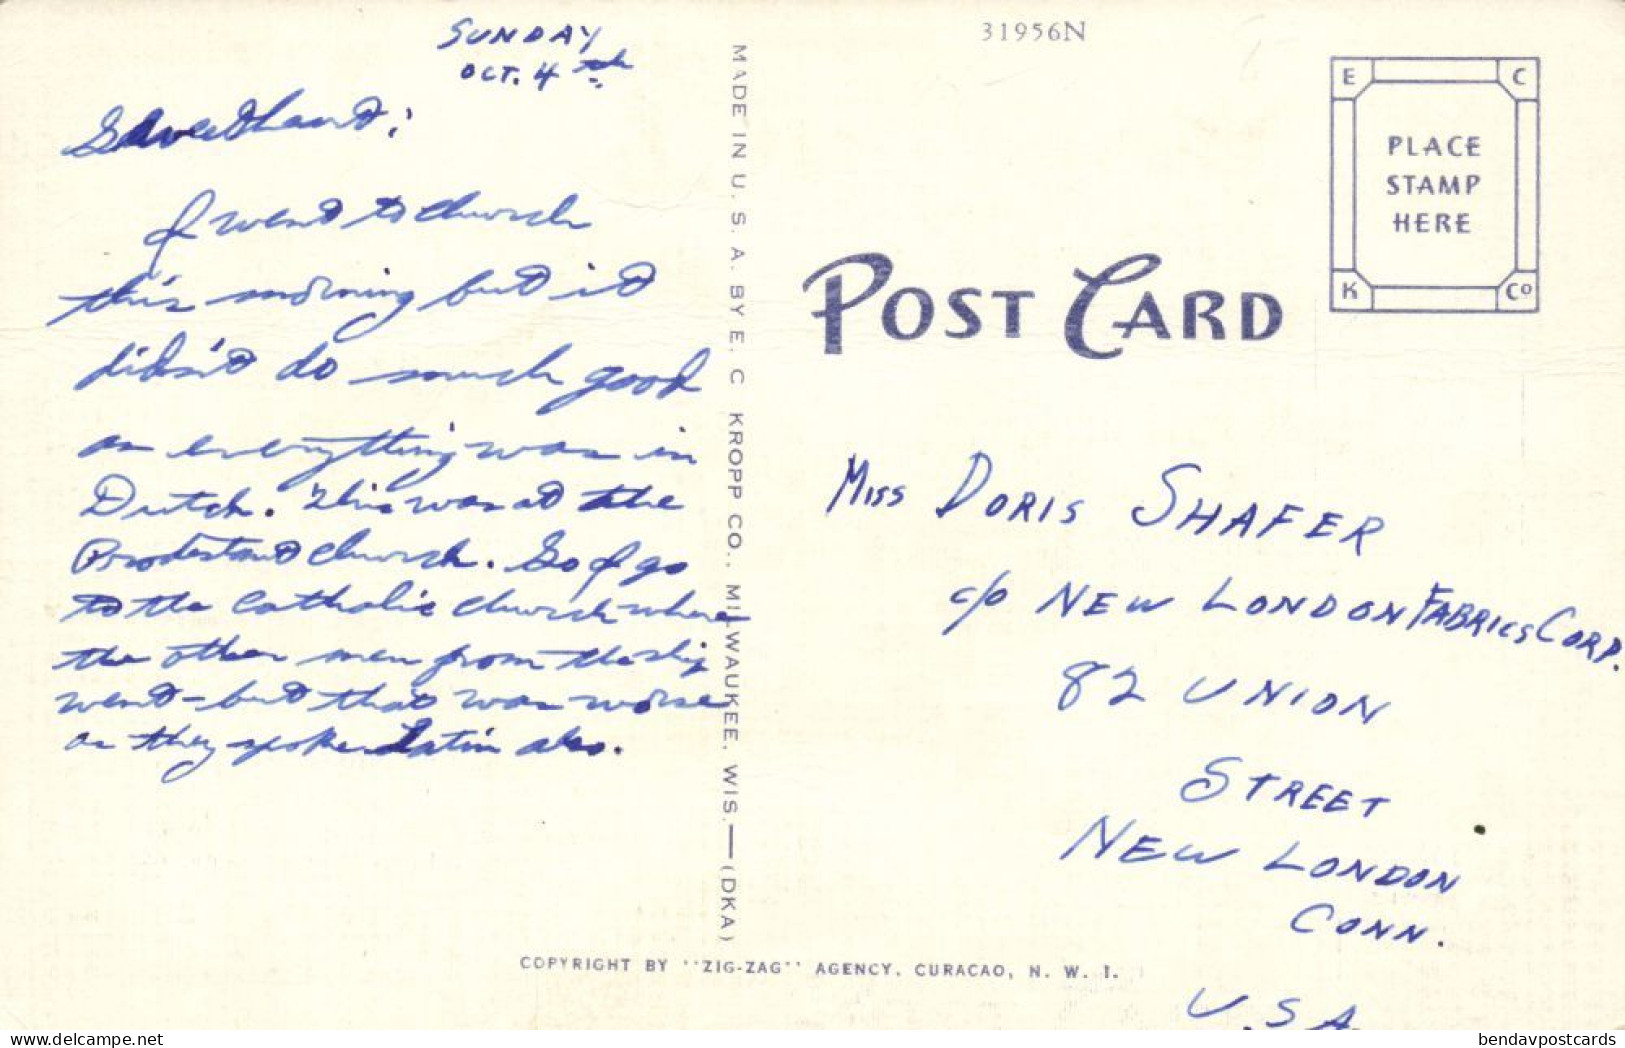 SUNDAY
OCT. 4th
Sweethart:
I went to church
this morning but it
didn't do much good
as everything was in
Dutch. This was at the
Prodestant church. So I go
to the Catholic church where
the other men from the ship
went - but that was worse
as they spoke Latin also.
MADE IN U. S. A. BY E. C. KROPP CO., MILWAUKEE, WIS.—(DKA)
31956N
E C
PLACE
STAMP
HERE
K Co
POST CARD
MISS DORIS SHAFER
c/o NEW LONDON FABRICS CORP.
82 UNION
STREET
NEW LONDON
CONN.
U.S.A.
COPYRIGHT BY "ZIG-ZAG" AGENCY, CURACAO, N. W. I.
delcampe.net
bendavpostcards